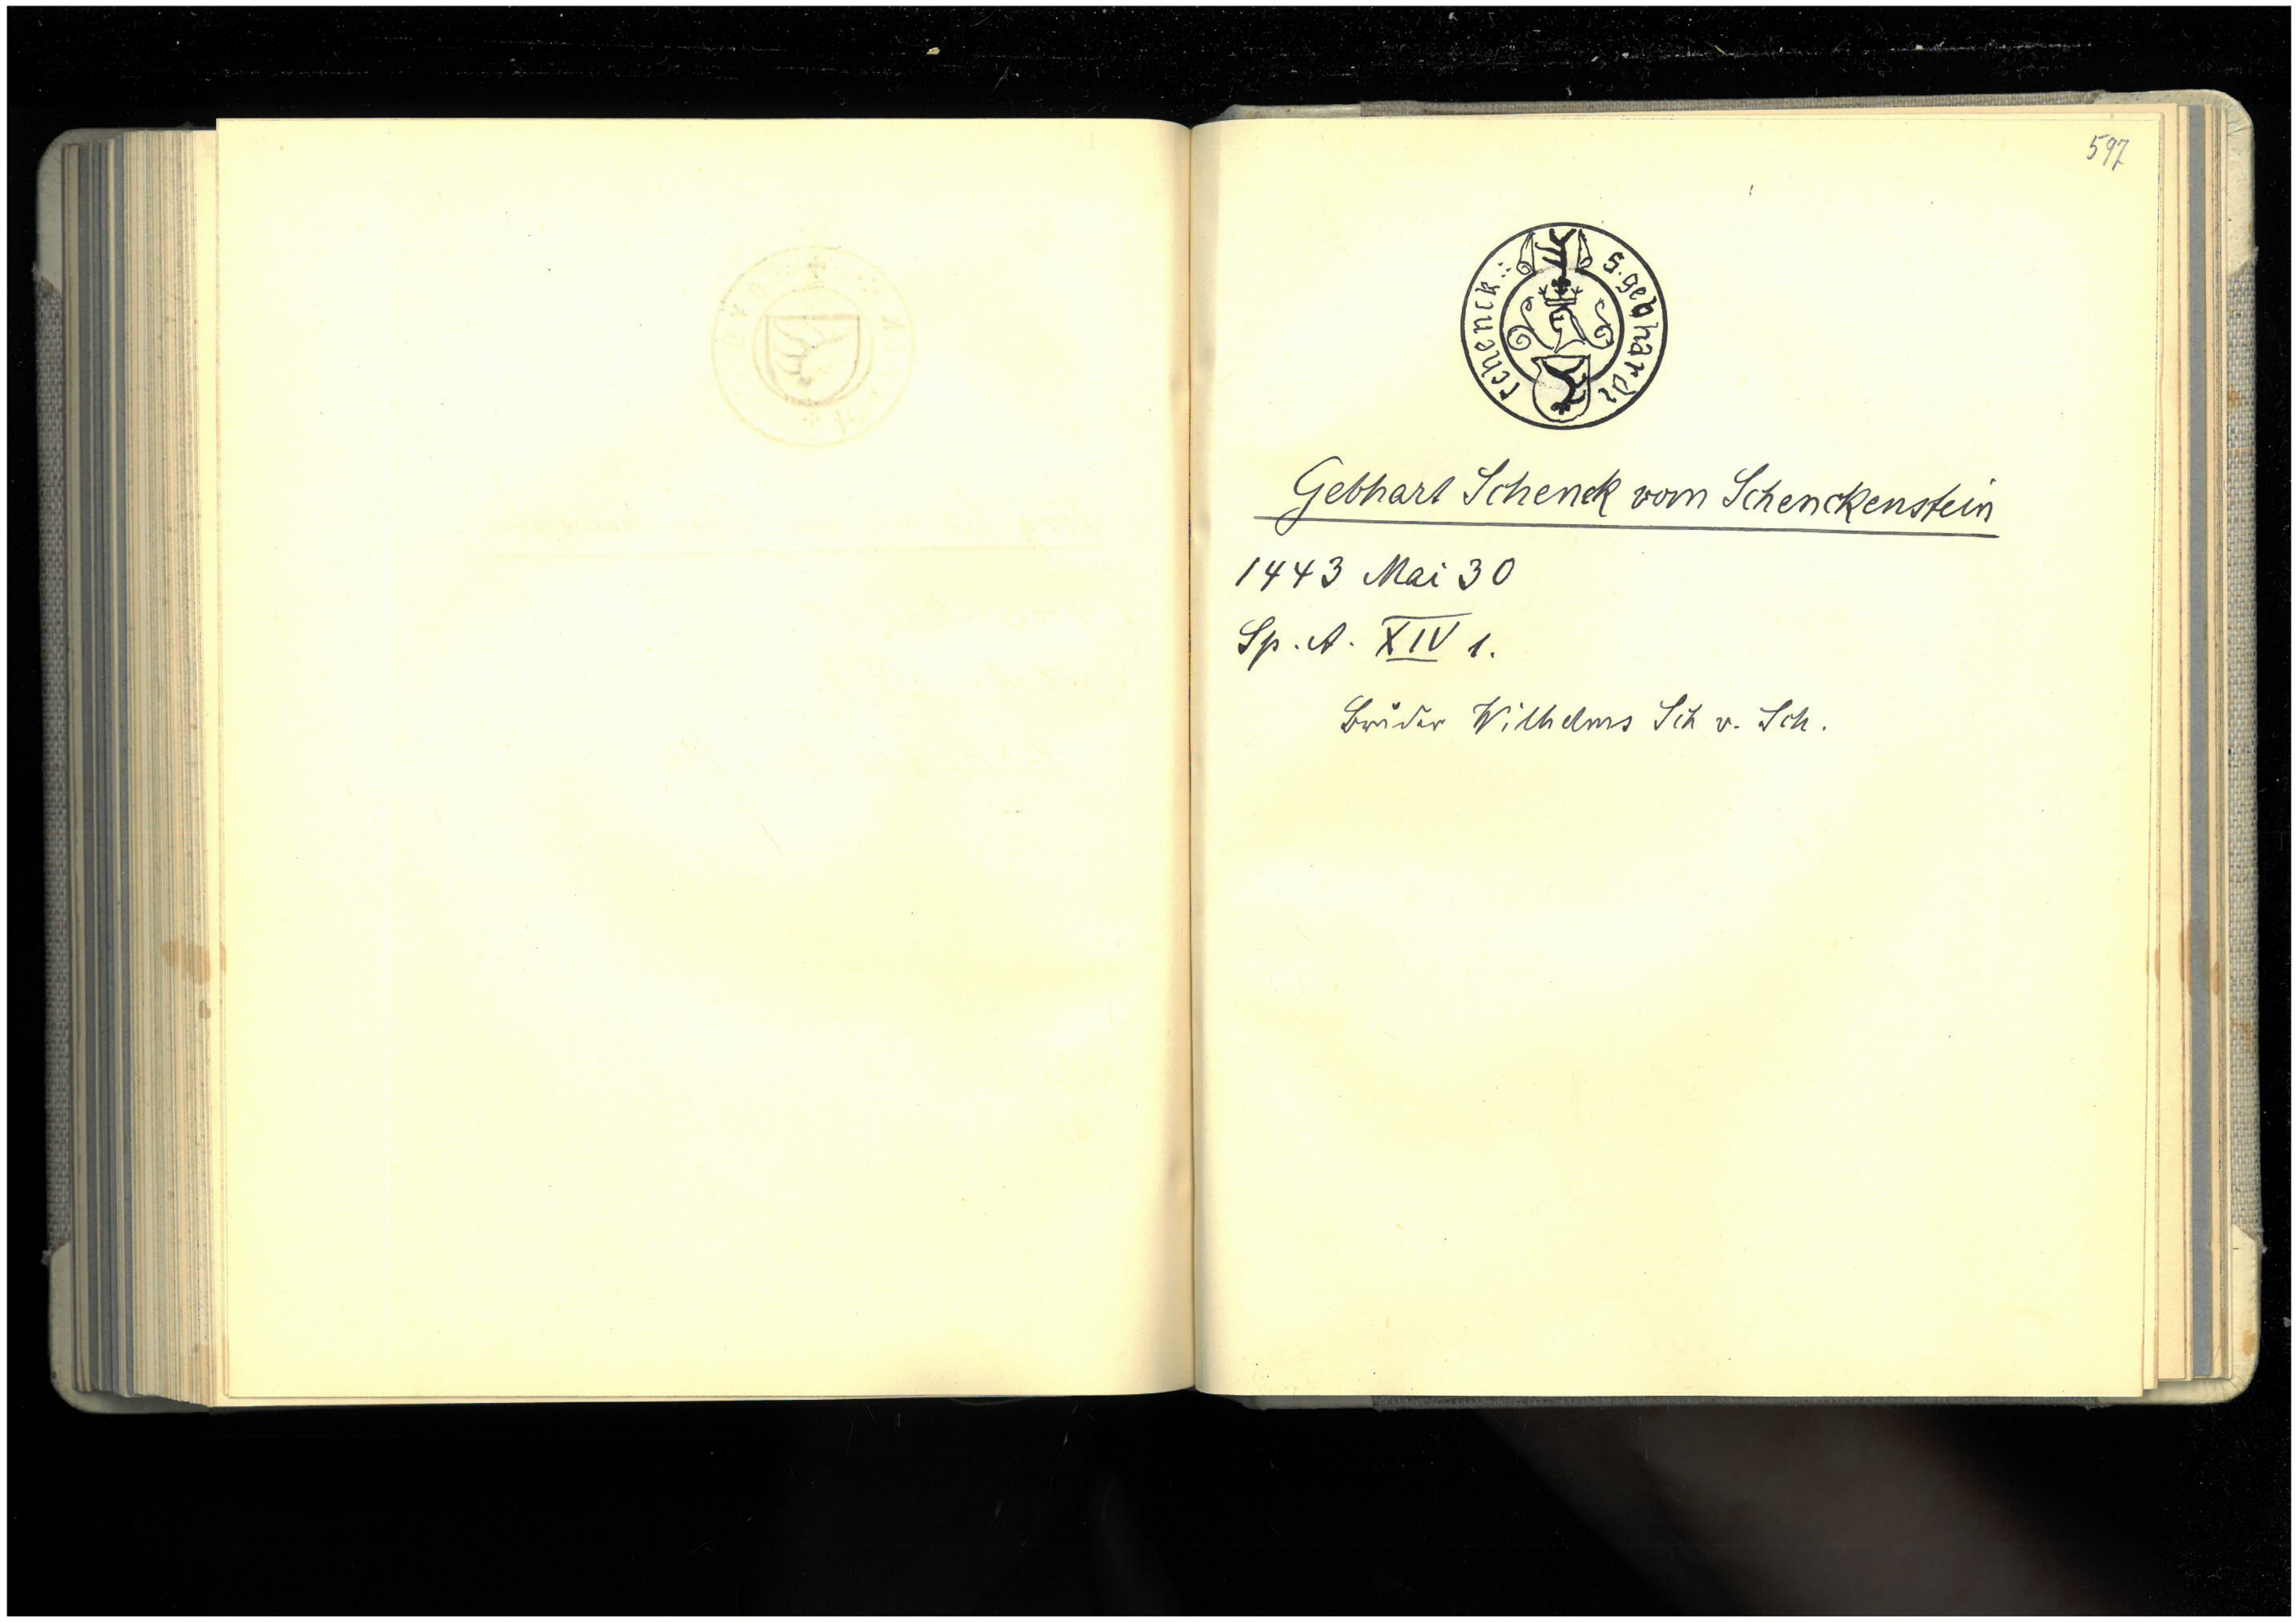 597
s. gebhardi schenck :
Gebhart Schenck vom Schenckenstein
1443 Mai 30
Sp. A. XIV 1.
Bruder Wilhelms Sch v. Sch.